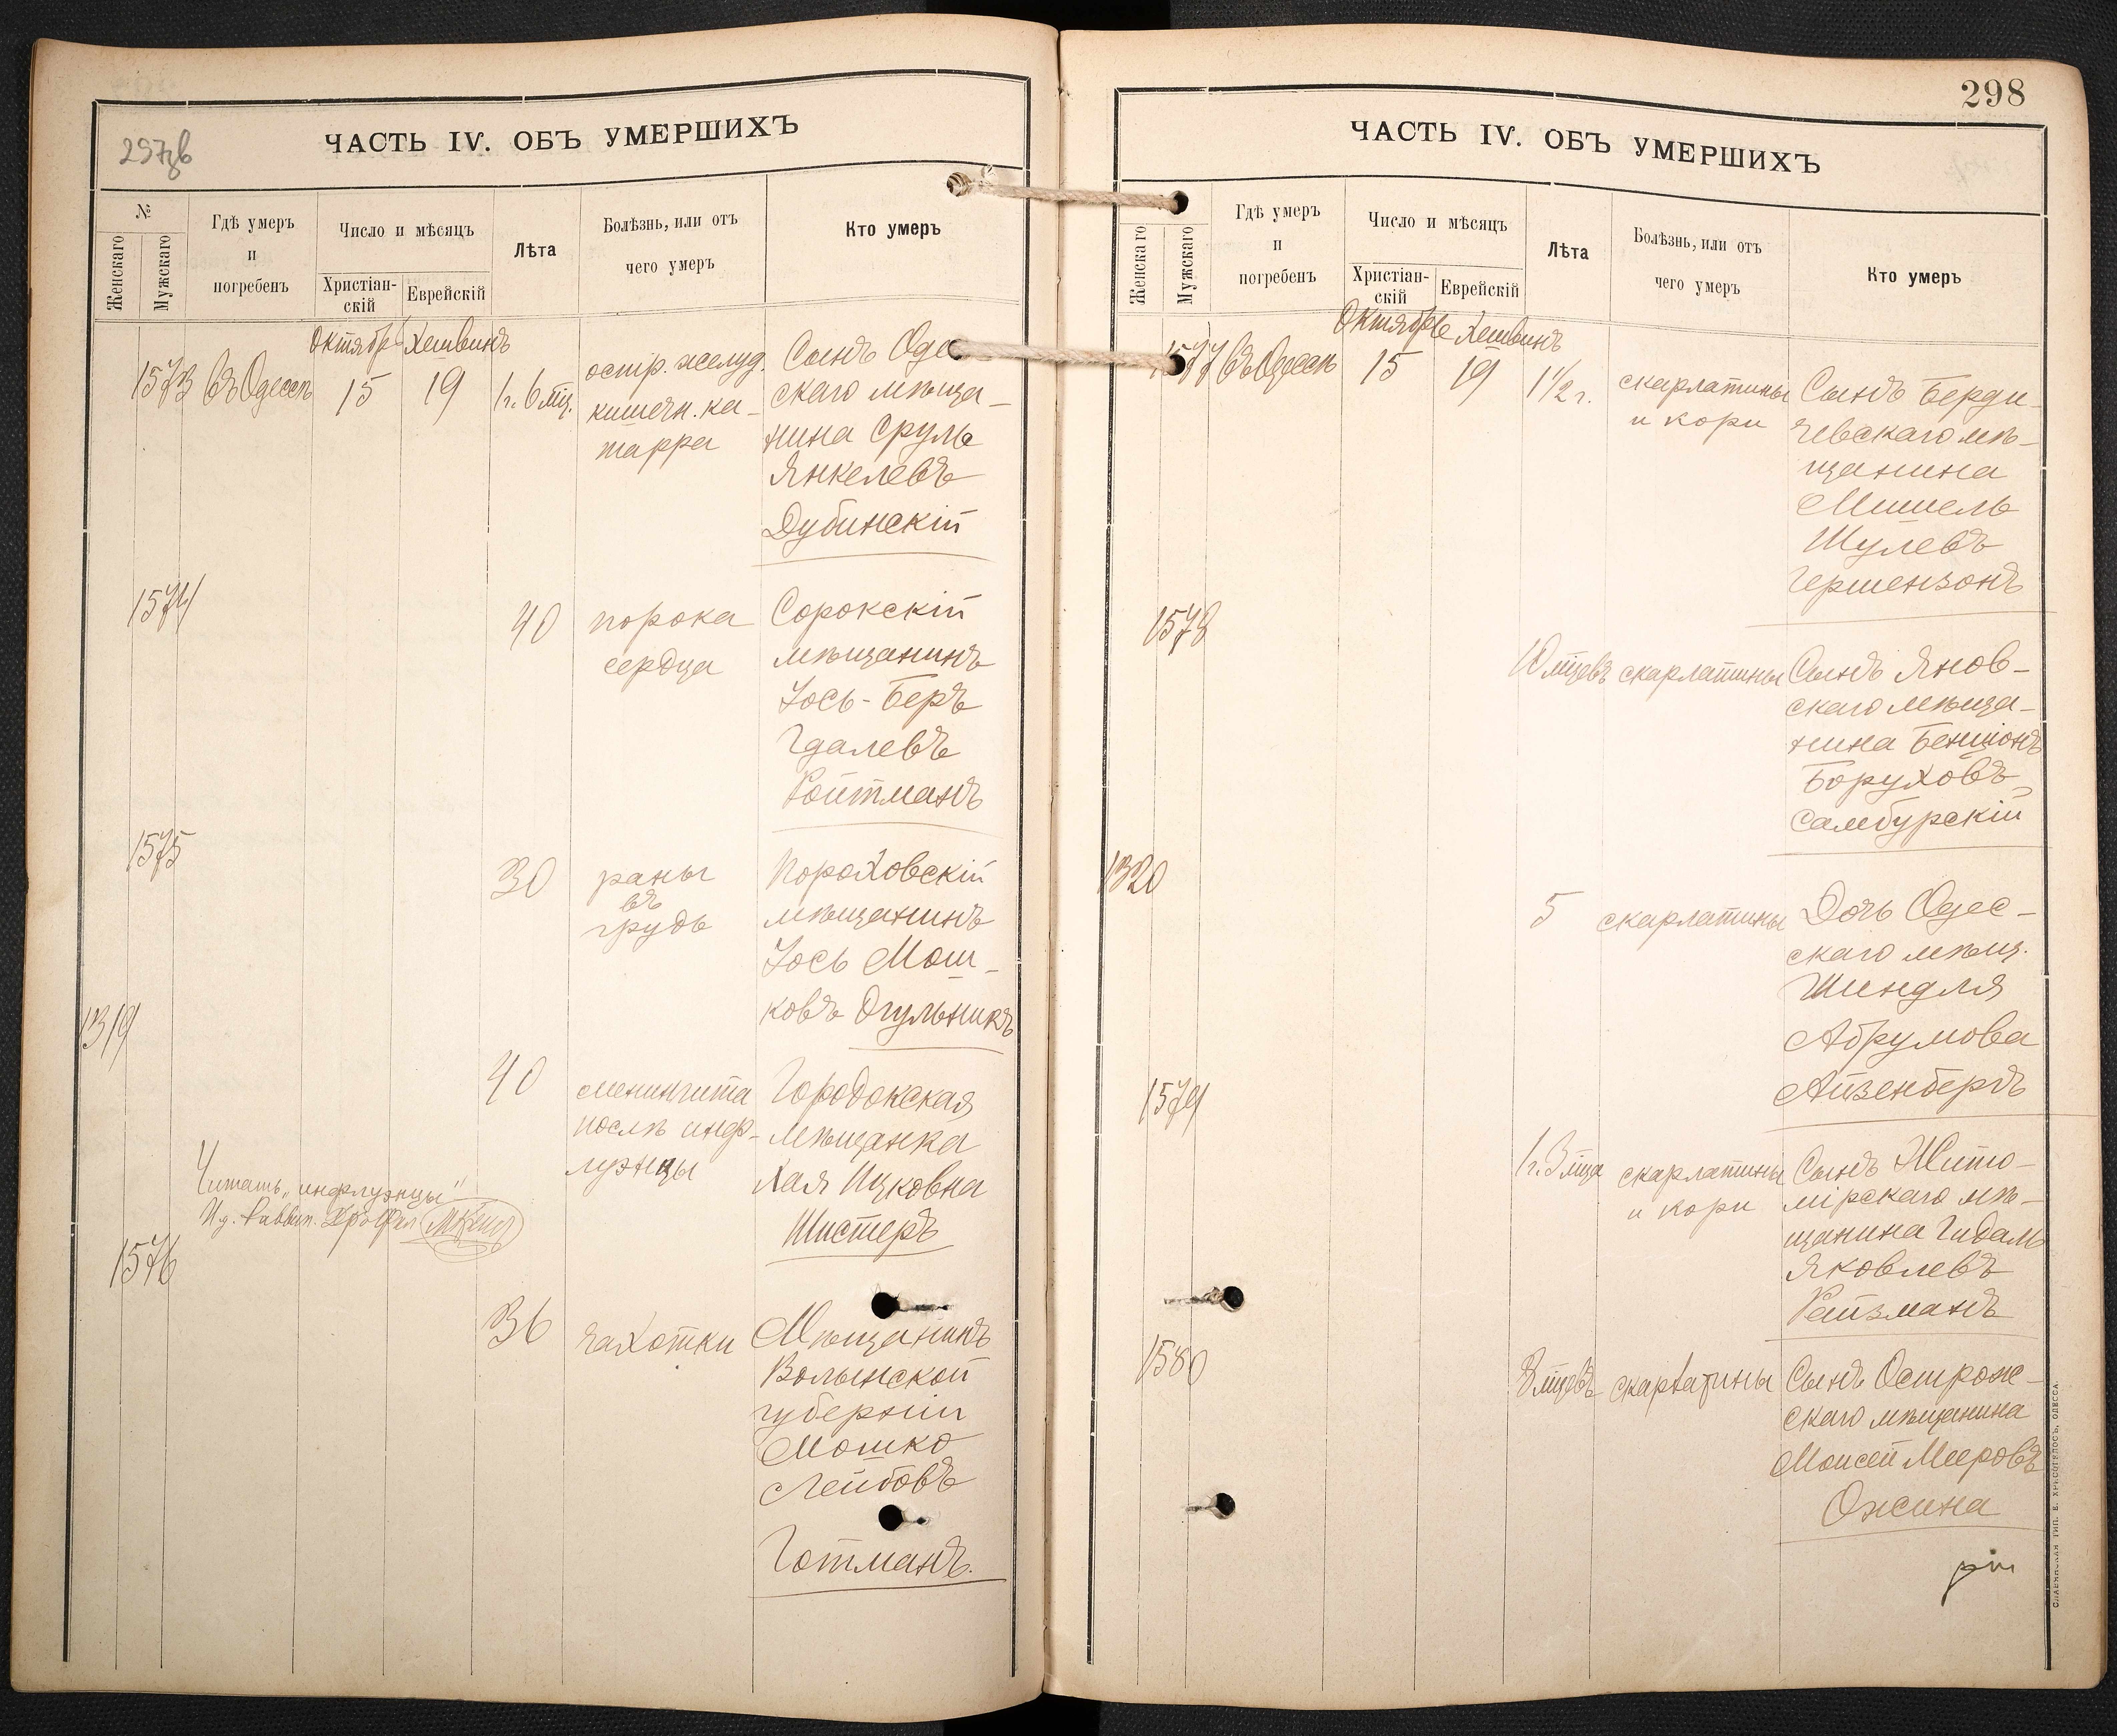 297 об
ЧАСТЬ IV. ОБЪ УМЕРШИХЪ
№
Женскаго
Мужскаго
Гдѣ умеръ
и
погребенъ
Число и мѣсяцъ
Христіан-
скій
Еврейскій
Лѣта
Болѣзнь, или отъ
чего умеръ
Кто умеръ
Октябрь Хешвинъ
1573 въ Одессѣ 15 19 1 г. 6 мц.
остр. желуд.
кишечн. ка-
тарра
Сынъ Оде
скаго мѣща-
нина Сруль
Янкелевъ
Дубинскій
1574
40
порока
сердца
Сорокскій
мѣщанинъ
Іось-Беръ
Гдалевъ
Ройтманъ
1575
30
раны
въ
грудь
Пороховскій
мѣщанинъ
Іось Мош-
ковъ Огульникъ
1319
40
менингита
послѣ инф-
луэнцы
Городокская
мѣщанка
Хая Ицковна
Шистеръ
Читать „инфлуэнцы“
И. д. Раввин.
1576
36
чахотки
Мѣщанинъ
Волынской
губерніи
Мошко
Лейбовъ
Готманъ.
298
ЧАСТЬ IV. ОБЪ УМЕРШИХЪ
Женскаго
Мужскаго
Гдѣ умеръ
и
погребенъ
Число и мѣсяцъ
Христіан-
скій
Еврейскій
Лѣта
Болѣзнь, или отъ
чего умеръ
Кто умеръ
Октябрь Хешвинъ
1577 въ Одессѣ 15 19 1 1/2 г.
скарлатины
и кори
Сынъ Берди-
чевскаго мѣ-
щанина
Мишель
Шулевъ
Гершензонъ
1578
10 мцевъ
скарлатины
Сынъ Янов-
скаго мѣща-
нина Бенціонъ
Боруховъ
Самбурскій
1320
5
скарлатины
Дочь Одес-
скаго мѣщ.
Шиндля
Абрумова
Айзенбергъ
1579
1 г. 3 мца
скарлатины
и кори
Сынъ Жито-
мірскаго мѣ-
щанина Гидаль
Яковлевъ
Рейзманъ
1580
8 мцевъ
скарлатины
Сынъ Острож-
скаго мѣщанина
Моисей Мееровъ
Ожина
СЛАВЯНСКАЯ ТИП. Е. ХРИСОГЕЛОСЪ, ОДЕССА.